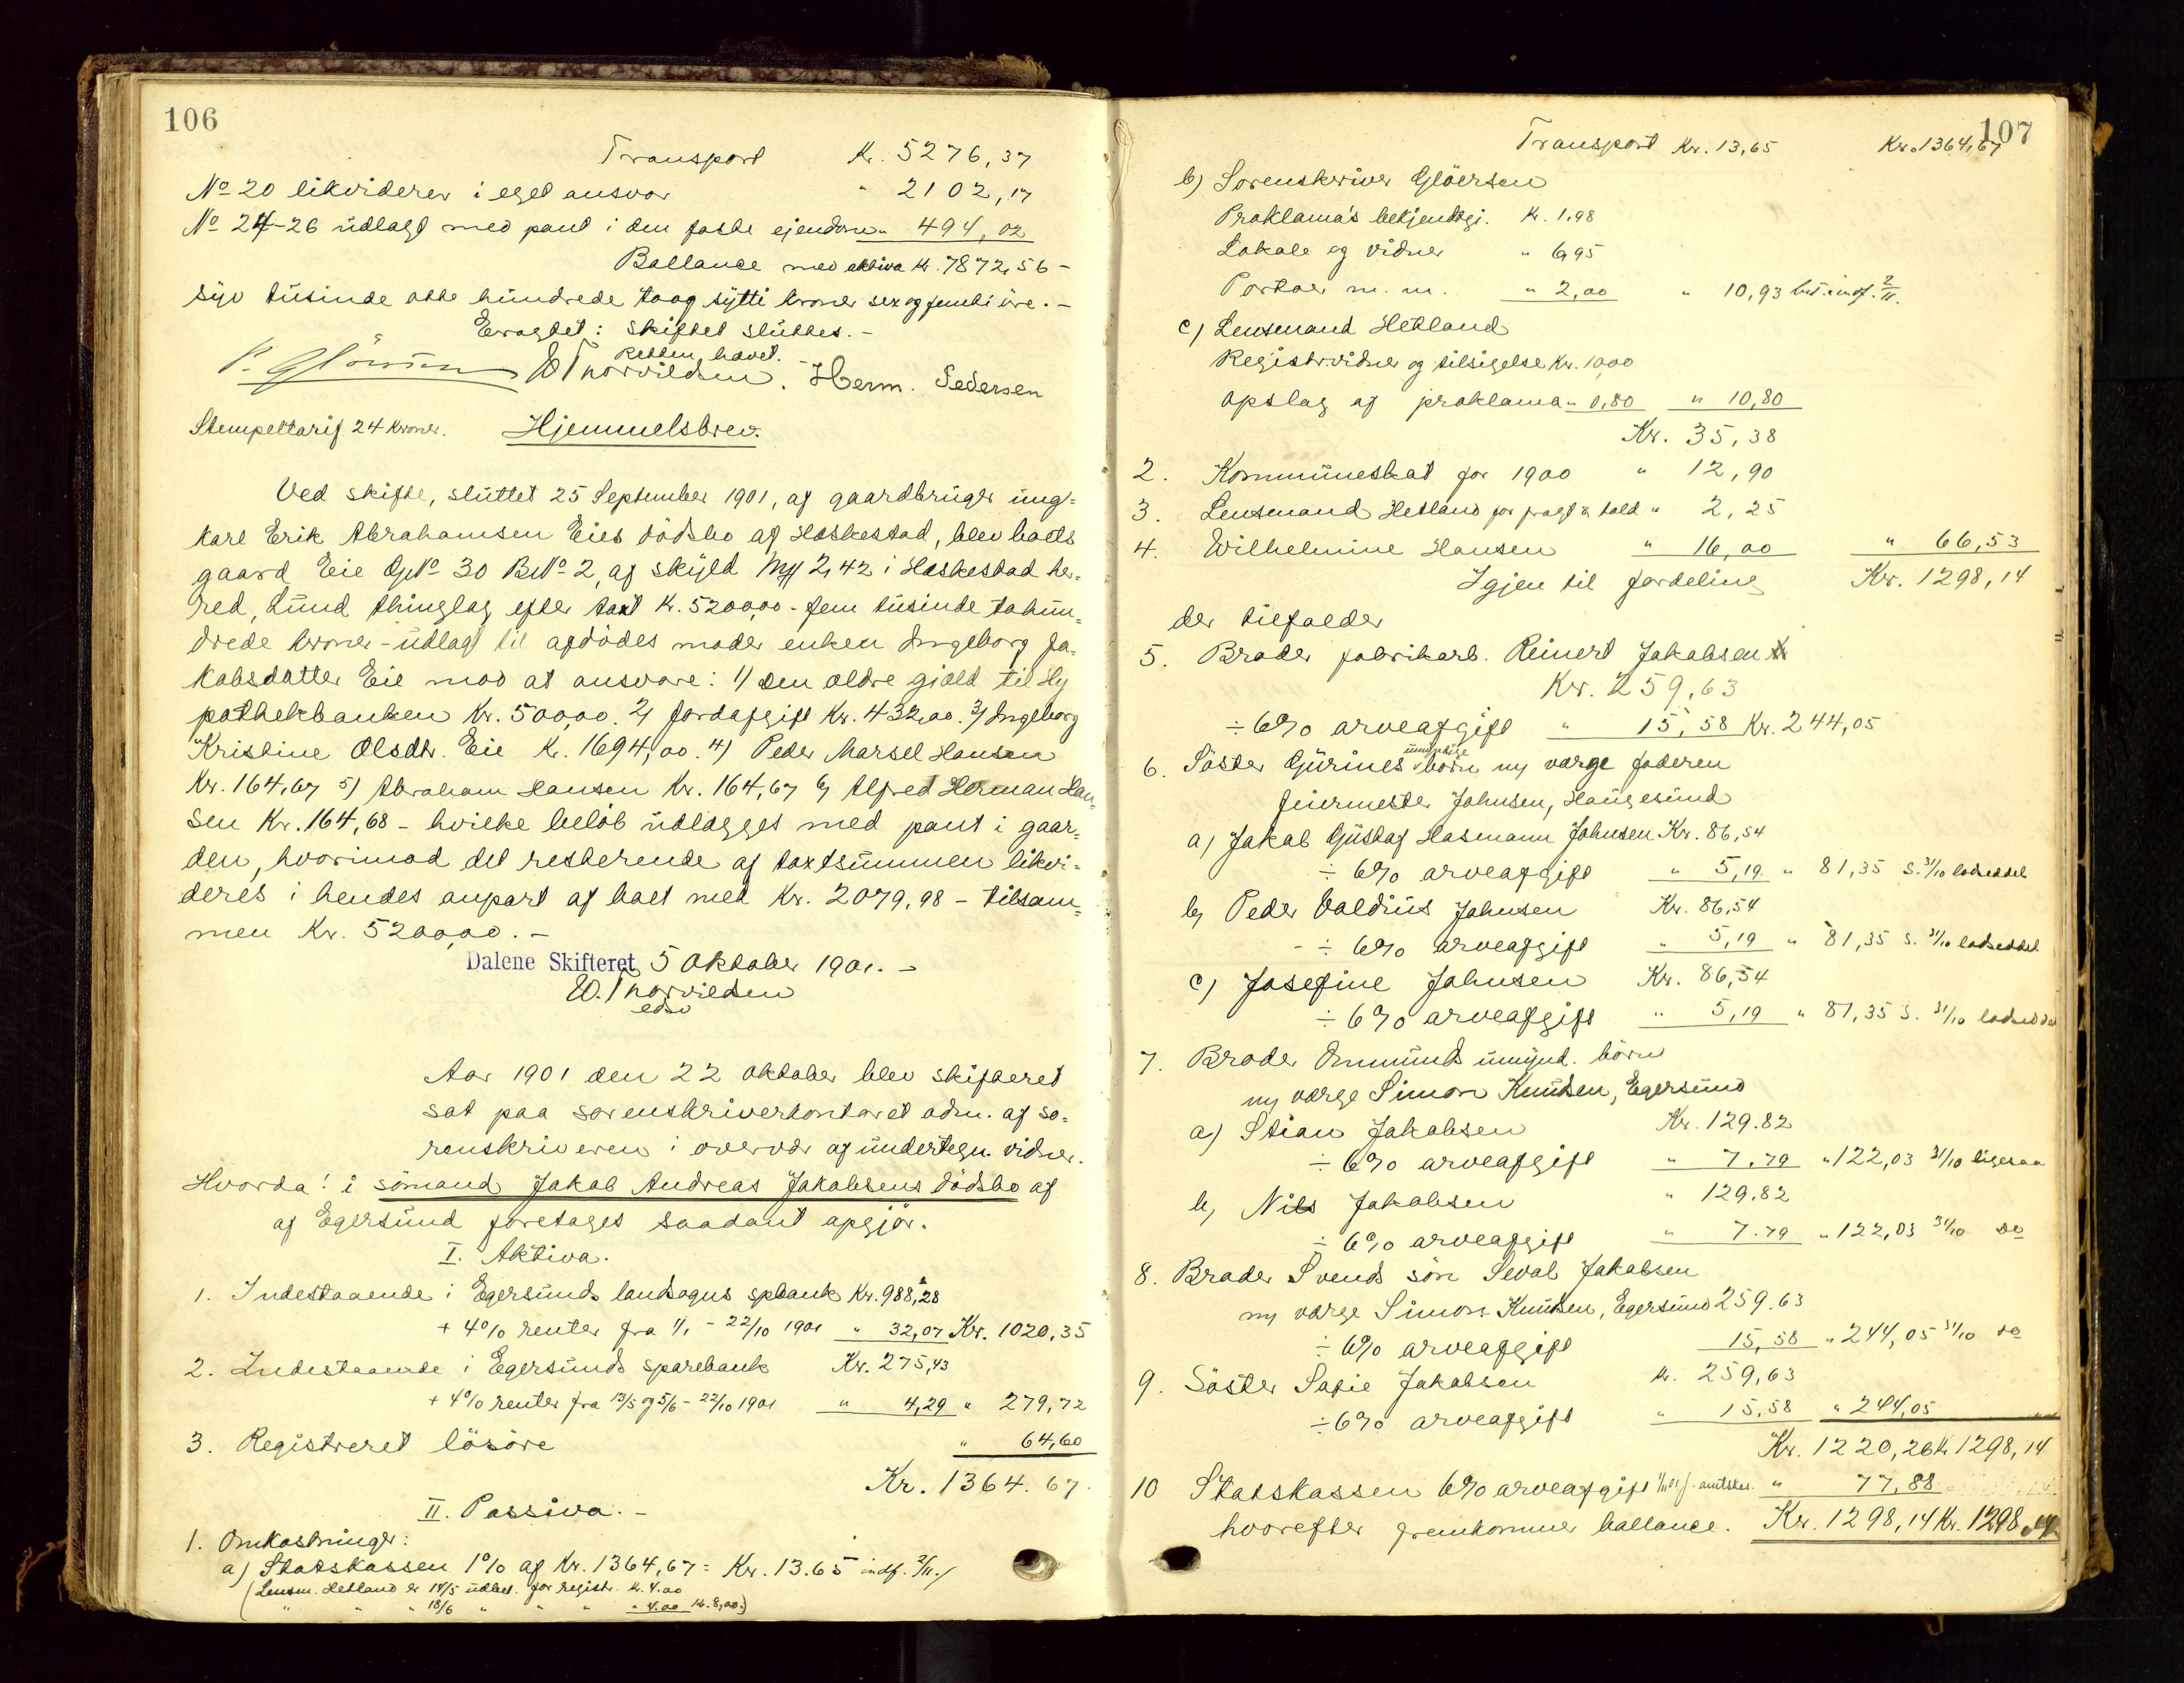 106
Transport Kr. 5276,37
No 20 likviderer i eget ansvar " 2102,17
No 24-26 udlagt med pant i den faste ejendom " 494,02
Ballance med aktiva Kr. 7872,56 -
syv tusinde otte hundrede toog sytti kroner sex og femti øre. -
Eragtet: Skiftet sluttes. -
Retten hævet. -
W Thorvildsen. Herm. Pedersen
Stempeltarif 24 Kroner. Hjemmelsbrev.
Ved skifte, sluttet 25 September 1901, af gaardbruger ung-
karl Erik Abrahamsen Eies dödsbo af Heskestad, blev boets
gaard Eie GNo 30 BNo 2, af skyld My 2,42 i Heskestad her-
red, Lund thinglag efter taxt Kr. 5200,00 - fem tusinde tohun-
drede kroner - udlagt til afdödes moder enken Ingeborg Ja-
kobsdatter Eie mod at ansvare: 1) den ældre gjæld til Hy
pothekbanken Kr. 500,00. 2) Jordafgift Kr. 432,00. 3) Ingeborg
Kristine Olsdtr. Eie Kr. 1694,00. 4) Peder Marsel Hansen
Kr. 164,67 5) Abraham Hansen Kr. 164,67 6) Alfred Herman Han-
sen Kr. 164,68 - hvilke belöb udlægges med pant i gaar-
den, hvorimod det resterende af taxtsummen likvi-
deres i hendes anpart af boet med Kr. 2079,98 - tilsam-
men Kr. 5200,00. -
Dalene Skifteret, 5 Oktober 1901. -
W. Thorvildsen
edsv
Aar 1901 den 22 oktober blev skifteret
sat paa sorenskriverkontoret adm. af so-
renskriveren i overvær af undertegn. vidner.
Hvorda! i sömand Jakob Andreas Jakobsens dödsbo af
af Egersund foretages saadant opgjör.
I. Aktiva.
1. Indestaaende i Egersunds landsogns spbank Kr. 988,28
+ 4% renter fra 1/1 - 22/10 1901 " 32,07 Kr. 1020,35
2. Indestaaende i Egersunds sparebank Kr. 275,43
+ 4% renter fra 13/5 og 5/6 - 22/10 1901 " 4,29 " 279,72
3. Registreret lösöre " 64,60
Kr. 1364.67.
II. Passiva. -
1. Omkostninger:
a) Statskassen 1% af Kr. 1364,67 = Kr. 13.65 indf. 2/11./
(Lensm. Hetland er 14/5 udbet. for registr. Kr. 4.00
" " " 18/6 " " " " 4.00 Kr. 8,00.)
107
Transport Kr. 13,65 Kr. 1364,67
b) Sorenskriver Glöersen
Proklama's bekjendtgj. Kr. 1,98
Lokale og vidner " 6,95
Portoer m. m. " 2,00 " 10,93 bet. indf. 2/11.
c) Lensmand Hetland
Registr. vidner og tilsigelse Kr. 10,00
Opslag af proklama " 0,80 " 10,80
Kr. 35,38
2. Kommuneskat for 1900 " 12,90
3. Lensmand Hetland for told " 2,25
4. Wilhelmine Hansen " 16,00 " 66,53
Igjen til fordeling Kr. 1298,14
der tilfalder
5. Broder fabrikarb. Reinert Jakobsen
Kr. 259,63
÷ 6% arveafgift " 15,58 Kr. 244,05
6. Söster Gurines umyndige börn ny værge faderen
Johnsen, Haugesund
a) Jakob Gustaf Hasmann Johnsen Kr. 86,54
÷ 6% arveafgift " 5,19 " 81,35 S. 31/10 lodseddel
b) Peder Valdius Johnsen Kr. 86,54
÷ 6% arveafgift " 5,19 " 81,35 S. 31/10 lodseddel
c) Josefine Johnsen Kr. 86,54
÷ 6% arveafgift " 5,19 " 81,35 S. 31/10 lodseddel
7. Broder Ommunds umynd. börn
ny værge Simon Knudsen, Egersund
a) Stian Jakobsen Kr. 129.82
÷ 6% arveafgift " 7.79 " 122,03 31/10 ligesaa
b) Nils Jakobsen " 129.82
÷ 6% arveafgift " 7.79 " 122,03 31/10 do
8. Broder Svends sön Seval Jakobsen
ny værge Simon Knudsen, Egersund 259.63
÷ 6% arveafgift 15,58 " 244,05 31/10 do
9. Söster Sofie Jakobsen Kr. 259,63
÷ 6% arveafgift " 15,58 " 244,05
Kr. 1220,26 Kr 1298,14
10 Statskassen 6% arveafgift amtsk. " 77,88
hvorefter fremkommer ballance. Kr. 1298,14 Kr. 1298,14